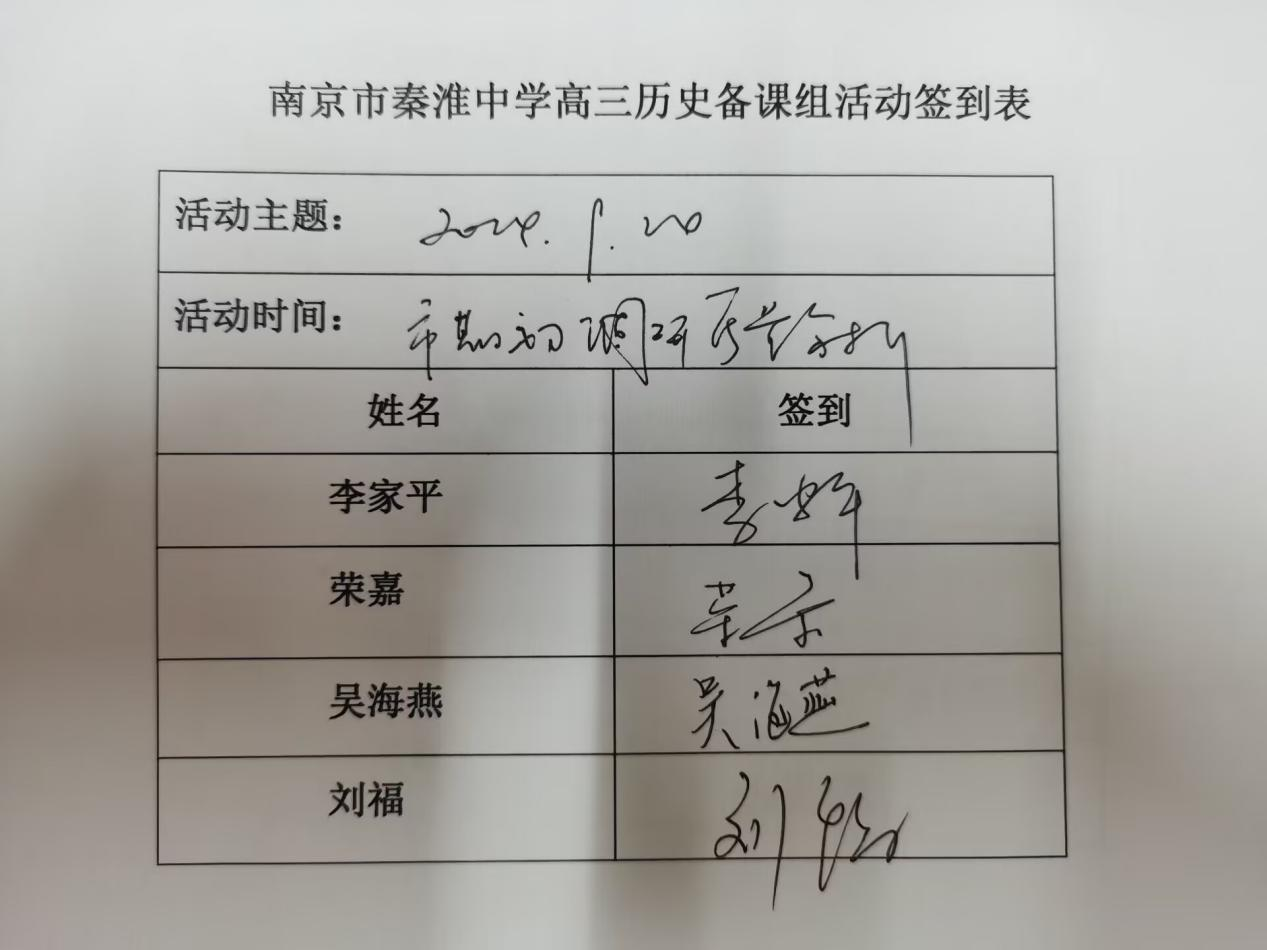 南京市秦淮中学高三历史备课组活动签到表
活动主题： 2024.1.20
活动时间： 市期初调研质量分析
姓名 签到
李家平 李家平
荣嘉 荣嘉
吴海燕 吴海燕
刘福 刘福